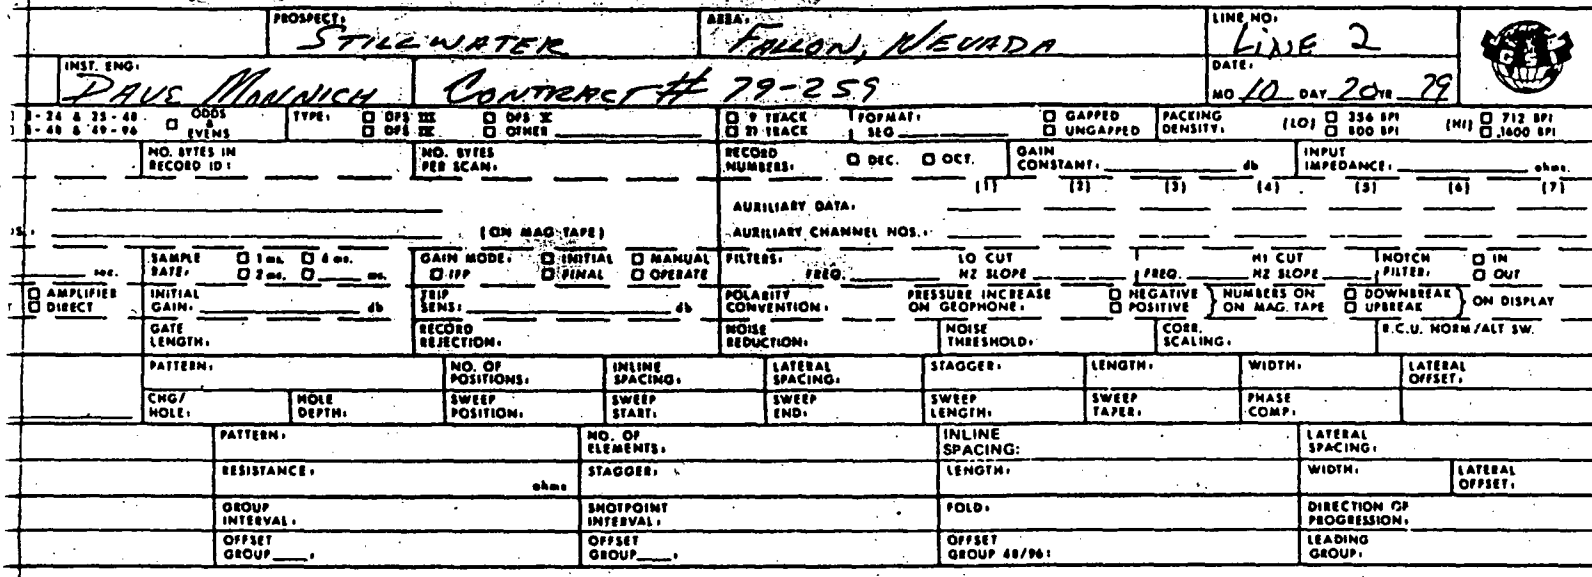 PROSPECT: STILLWATER AREA: FALLON, NEVADA LINE NO: LINE 2
INST. ENG: DAVE MONNICH CONTRACT# 79-259 DATE: MO 10 DAY 20 YR 79
1-24 & 25-48 ODDS & EVENS TYPE: DFS III DFS V 9 TRACK FORMAT: GAPPED PACKING DENSITY: (LO) 356 BPI (HI) 712 BPI
1-48 & 49-96 DFS IV OTHER 21 TRACK SEG UNGAPPED 800 BPI 1600 BPI
NO. BYTES IN RECORD ID: NO. BYTES PER SCAN: RECORD NUMBERS: DEC. OCT. GAIN CONSTANT: db INPUT IMPEDANCE: ohms.
(1) (2) (3) (4) (5) (6) (7)
AUXILIARY DATA:
(ON MAG TAPE) AUXILIARY CHANNEL NOS.:
SAMPLE RATE: 1 ms. 4 ms. GAIN MODE: INITIAL MANUAL FILTERS: LO CUT HI CUT NOTCH FILTER: IN
sec. 2 ms. ms. IFP FINAL OPERATE FREQ. HZ SLOPE FREQ. HZ SLOPE OUT
AMPLIFIER INITIAL GAIN: db TRIP SENS: db POLARITY CONVENTION: PRESSURE INCREASE ON GEOPHONE: NEGATIVE NUMBERS ON MAG. TAPE DOWNBREAK ON DISPLAY
DIRECT POSITIVE UPBREAK
GATE LENGTH: RECORD REJECTION: NOISE REDUCTION: NOISE THRESHOLD: CORR. SCALING: R.C.U. NORM/ALT SW.
PATTERN: NO. OF POSITIONS: INLINE SPACING: LATERAL SPACING: STAGGER: LENGTH: WIDTH: LATERAL OFFSET:
CHG/HOLE: HOLE DEPTH: SWEEP POSITION: SWEEP START: SWEEP END: SWEEP LENGTH: SWEEP TAPER: PHASE COMP:
PATTERN: NO. OF ELEMENTS: INLINE SPACING: LATERAL SPACING:
RESISTANCE: ohms STAGGER: LENGTH: WIDTH: LATERAL OFFSET:
GROUP INTERVAL: SHOTPOINT INTERVAL: FOLD: DIRECTION OF PROGRESSION:
OFFSET GROUP : OFFSET GROUP : OFFSET GROUP 48/96: LEADING GROUP: